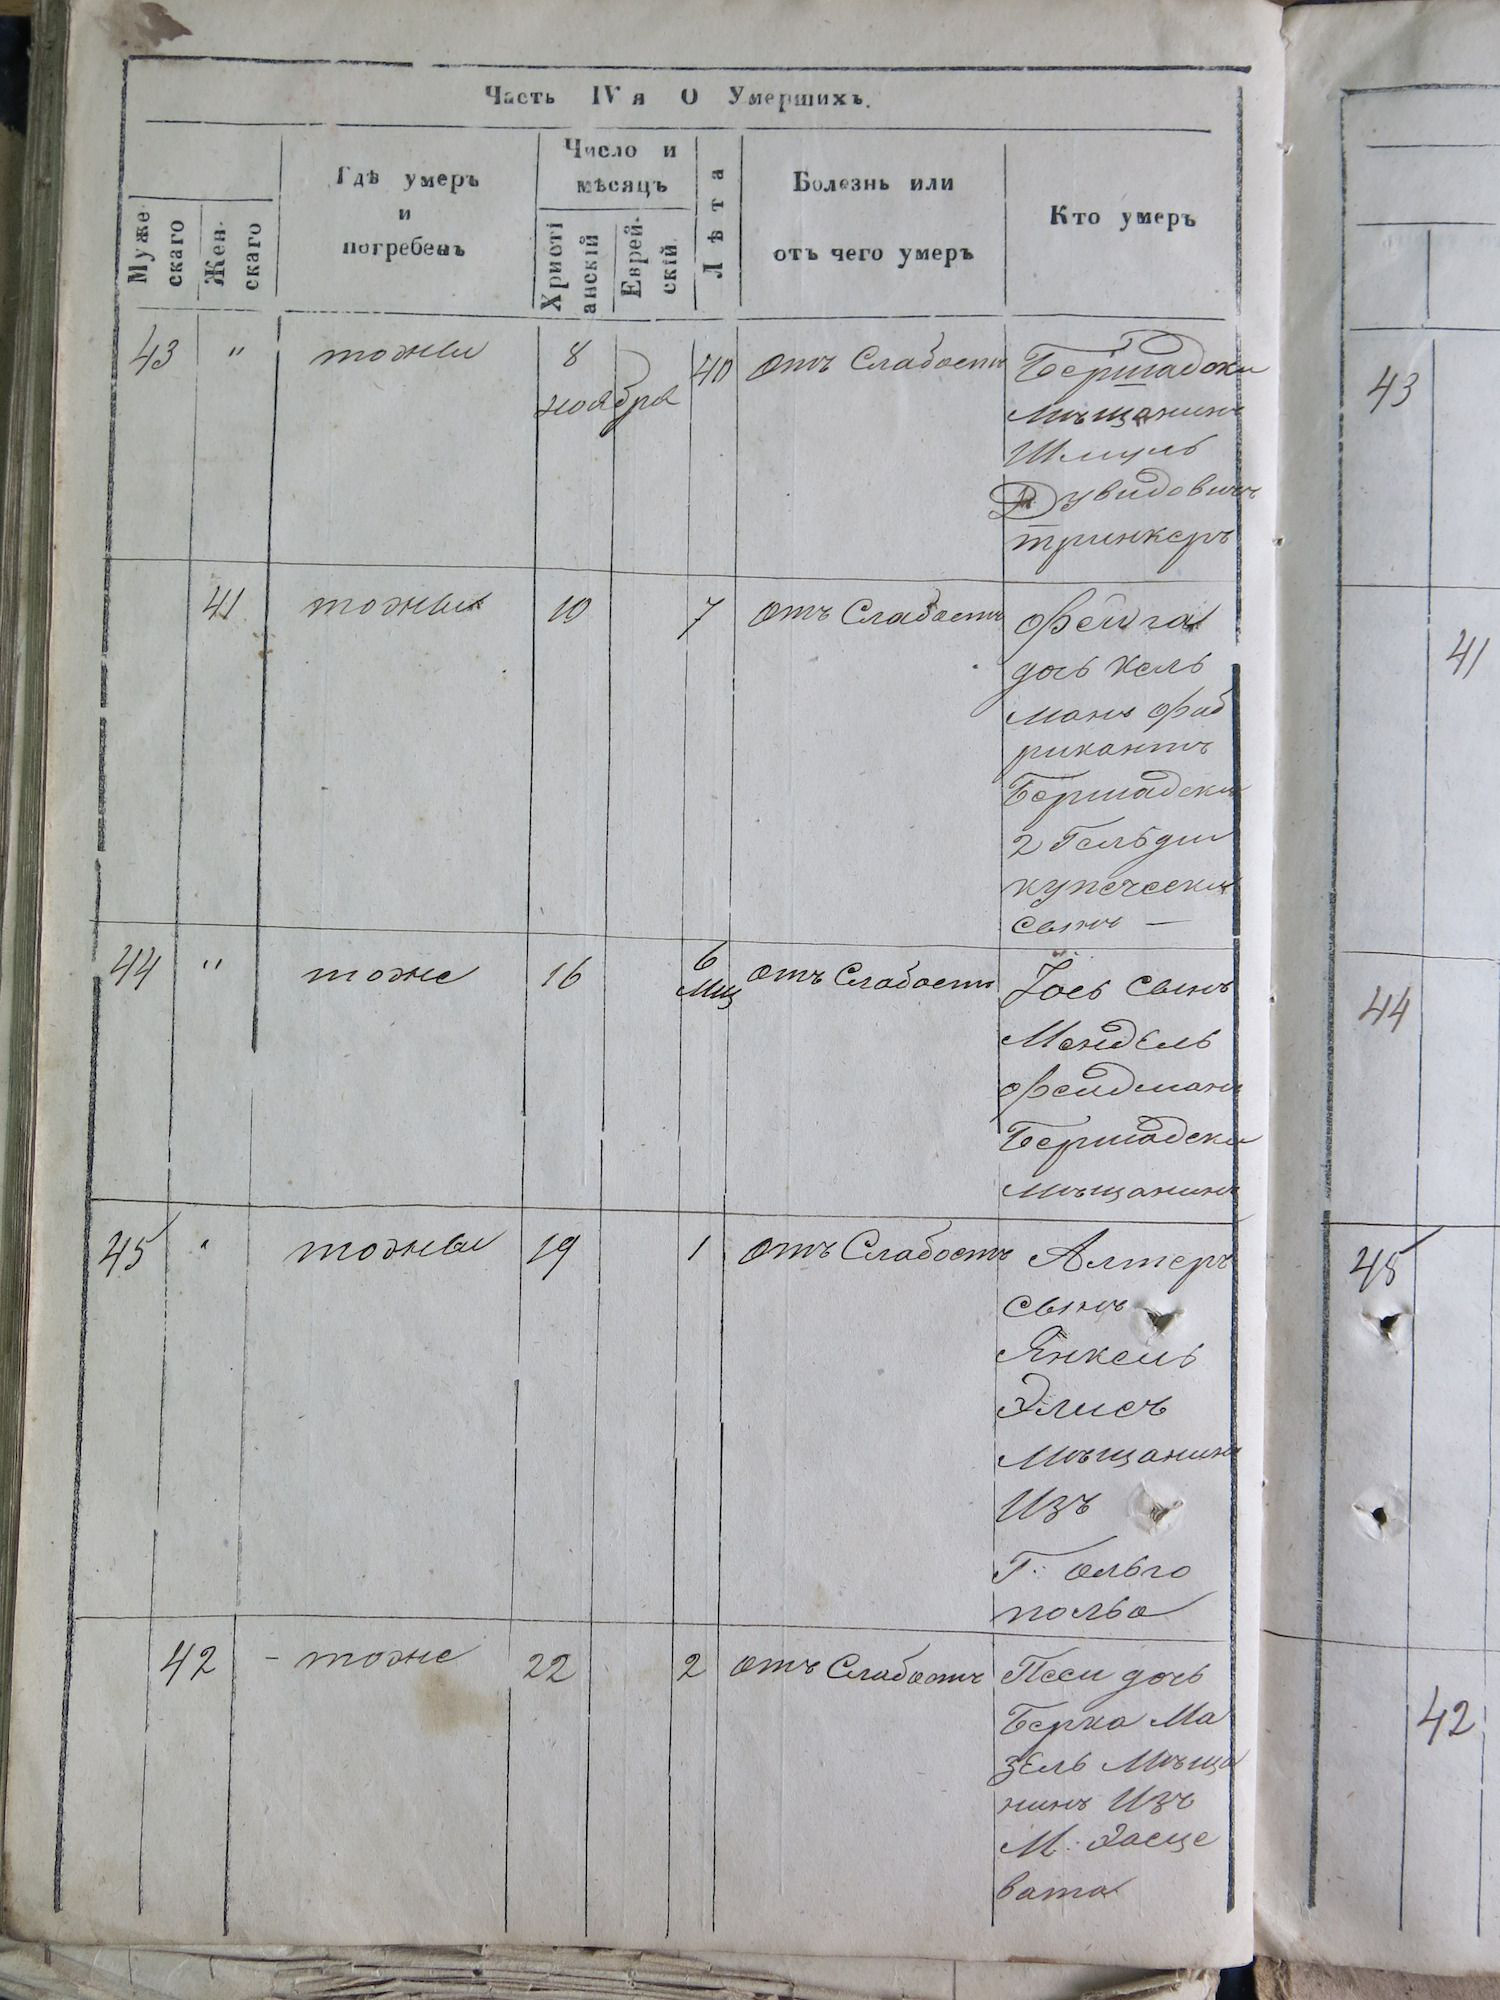 Часть IV я О Умершихъ.
Муже
скаго
Жен-
скаго
Гдѣ умеръ
и
погребенъ
Число и
мѣсяцъ
Христі
анскій
Еврей-
скій
Лѣта
Болезнь или
отъ чего умеръ
Кто умеръ
43 " 8 40 отъ Слабости Бершадски
ноября мѣщанинъ
Шмуль
Дувидовичъ
тринкеръ
41 10 7 отъ Слабости Фейга
дочь Кель
манъ Фаб
рикантъ
Бершадски
2 Гельдии
купечески
сынъ —
44 " тоже 16 6 отъ Слабости Іось сынъ
мц
Мендель
Фейдманъ
Бершадски
мѣщанинъ
45 " 19 1 отъ Слабости Алтеръ
сынъ
Янкель
Элисъ
мѣщанинъ
Изъ
Г. ольго
полья
42 - тоже 22 2 отъ Слабости Песи дочь
Берка Ма
зель Мѣща
нинъ Изъ
М. Хаще
вата
43
41
44
45
42